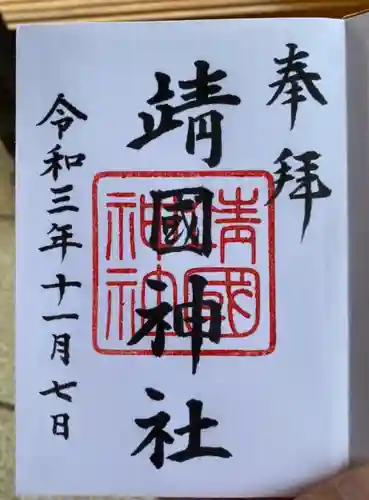 奉拝
靖國神社
靖國神社
令和三年十一月七日